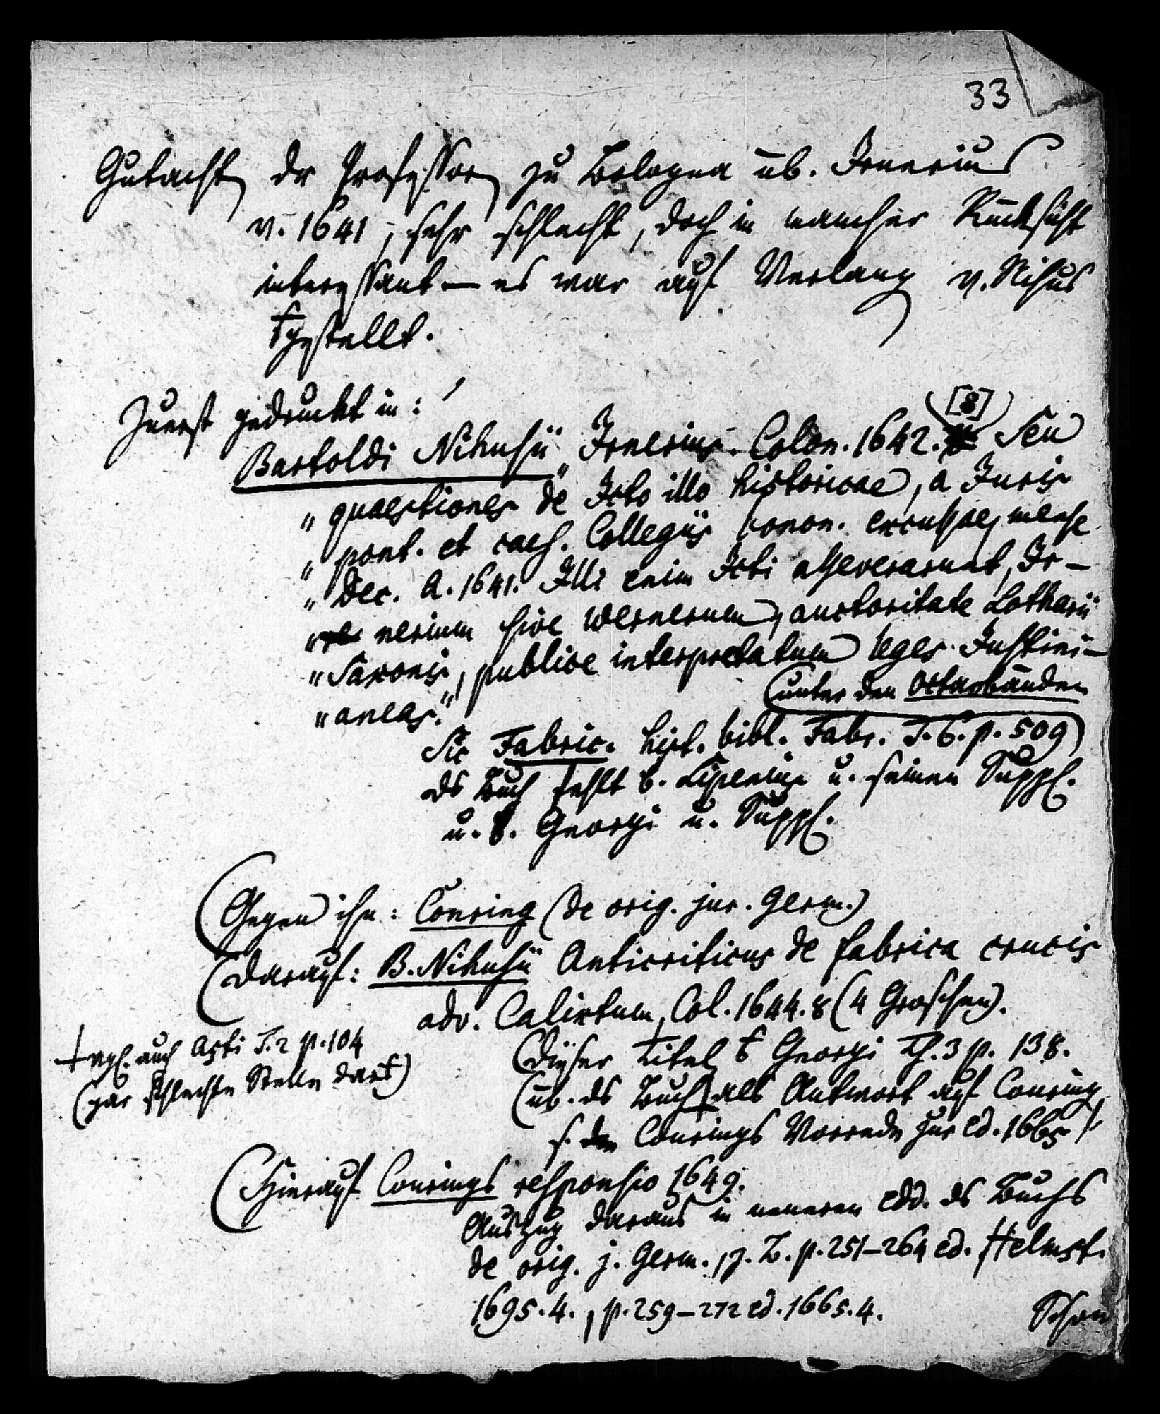 33
Gutachten der Professoren zu Bologna üb. Irnerius
v. 1641, sehr schlecht, doch in mancher Rücksicht
interessant — es war auf Verlang v. Nihus
†gestellt.
Zuerst gedruckt in:
Bartoldi Nihusii Irnerius. Colon. 1642. [8] Seu
"quaestiones de Icto illo historicae, a Juris
"pont. et caes. Collegiis bonon. excussae, mense
"Dec. A. 1641. Illi enim Icti asseverarunt, Ir-
"nerium sive Wernerum, auctoritate Lotharii
"Saxonis, publice interpretatum leges Justini-
"aneas."
(unter den Octavbänden
Sic Fabric. hist. bibl. Fabr. T. 6. p. 509)
ds Buch fehlt b. Lipenius u. seinen Suppl.
u. b. Georgi u. Suppl.
(Gegen ihn: Conring (de orig. jur. Germ.)
(darauf: B. Nihusii Anticriticus de fabrica crucis
adv. Calixtum, Col. 1644. 8 (4 Groschen).
† vgl. auch Asti T. 2 p. 104
(gar schlechte Stelle dort)
(Dieser Titel b Georgi Th. 3 p. 138.
(üb. ds Buch als Antwort auf Conring
s. Conrings Vorrede zur ed. 1665
(Hierauf Conrings responsio 1649.
Auszug daraus in neueren edd. ds Buchs
de orig. j. Germ., z. B. p. 251–264 ed. Helmst.
1695. 4., p. 259–272 ed. 1665. 4.
Schon